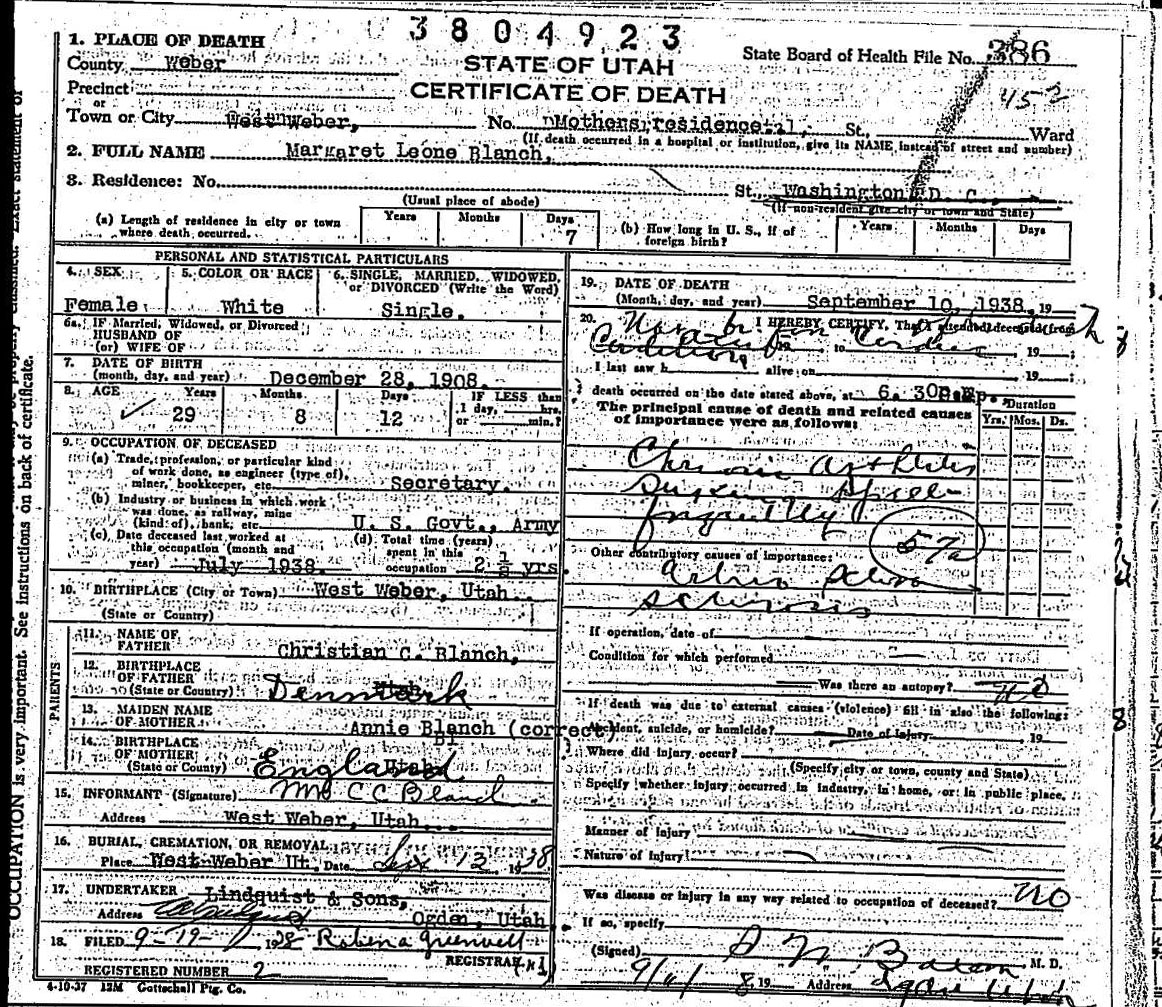 3804923
1. PLACE OF DEATH
County Weber
STATE OF UTAH
State Board of Health File No. 386
Precinct
CERTIFICATE OF DEATH
452
or
Town or City West Weber, No. Mothers residence, St., Ward
(If death occurred in a hospital or institution, give its NAME instead of street and number)
2. FULL NAME Margaret Leone Blanch,
3. Residence: No. St., Washington D. C.
(Usual place of abode)
(If non-resident give city or town and State)
(a) Length of residence in city or town where death occurred. Years Months Days 7
(b) How long in U. S., if of foreign birth? Years Months Days
PERSONAL AND STATISTICAL PARTICULARS
4. SEX Female
5. COLOR OR RACE White
6. SINGLE, MARRIED, WIDOWED, or DIVORCED (Write the Word) Single.
6a. IF Married, Widowed, or Divorced
HUSBAND OF
(or) WIFE OF
7. DATE OF BIRTH
(month, day, and year) December 28, 1908.
8. AGE Years 29 Months 8 Days 12 IF LESS than 1 day, hrs. or min.?
9. OCCUPATION OF DECEASED
(a) Trade, profession, or particular kind
of work done, as engineer (type of),
miner, bookkeeper, etc. Secretary.
(b) Industry or business in which work
was done, as railway, mine
(kind of), bank, etc. U. S. Govt., Army
(c) Date deceased last worked at
this occupation (month and
year) July 1938.
(d) Total time (years)
spent in this
occupation 2 1/2 yrs
10. BIRTHPLACE (City or Town) West Weber, Utah
(State or Country)
PARENTS
11. NAME OF
FATHER Christian C. Blanch,
12. BIRTHPLACE
OF FATHER
(State or Country) Denmark
13. MAIDEN NAME
OF MOTHER Annie Blanch (correct)
14. BIRTHPLACE
OF MOTHER
(State or County) England
15. INFORMANT (Signature) Mrs C C Blanch
Address West Weber, Utah
16. BURIAL, CREMATION, OR REMOVAL
Place West Weber Ut. Date Sept 13 1938
17. UNDERTAKER Lindquist & Sons,
Address Ogden, Utah.
18. FILED 9-19- 1938 Robena Greenwell
REGISTRAR
REGISTERED NUMBER 2
4-10-37 12M Gottschall Ptg. Co.
19. DATE OF DEATH
(Month, day, and year) September 10, 1938. 19
20. I HEREBY CERTIFY, That I attended deceased from
Condition 19 to 19
I last saw h alive on 19
death occurred on the date stated above, at 6. 30 p.m.
The principal cause of death and related causes
of importance were as follows:
Duration
Yrs. Mos. Ds.
Chronic Arthritis
57a
Other contributory causes of importance:
sclerosis
If operation, date of
Condition for which performed
Was there an autopsy? no
If death was due to external causes (violence) fill in also the following:
Accident, suicide, or homicide? Date of Injury 19
Where did injury occur?
(Specify city or town, county and State)
Specify whether injury occurred in industry, in home, or in public place.
Manner of Injury
Nature of Injury
Was disease or injury in any way related to occupation of deceased? no
If so, specify
(Signed) M. D.
Address Utah
OCCUPATION is very important. See instructions on back of certificate.